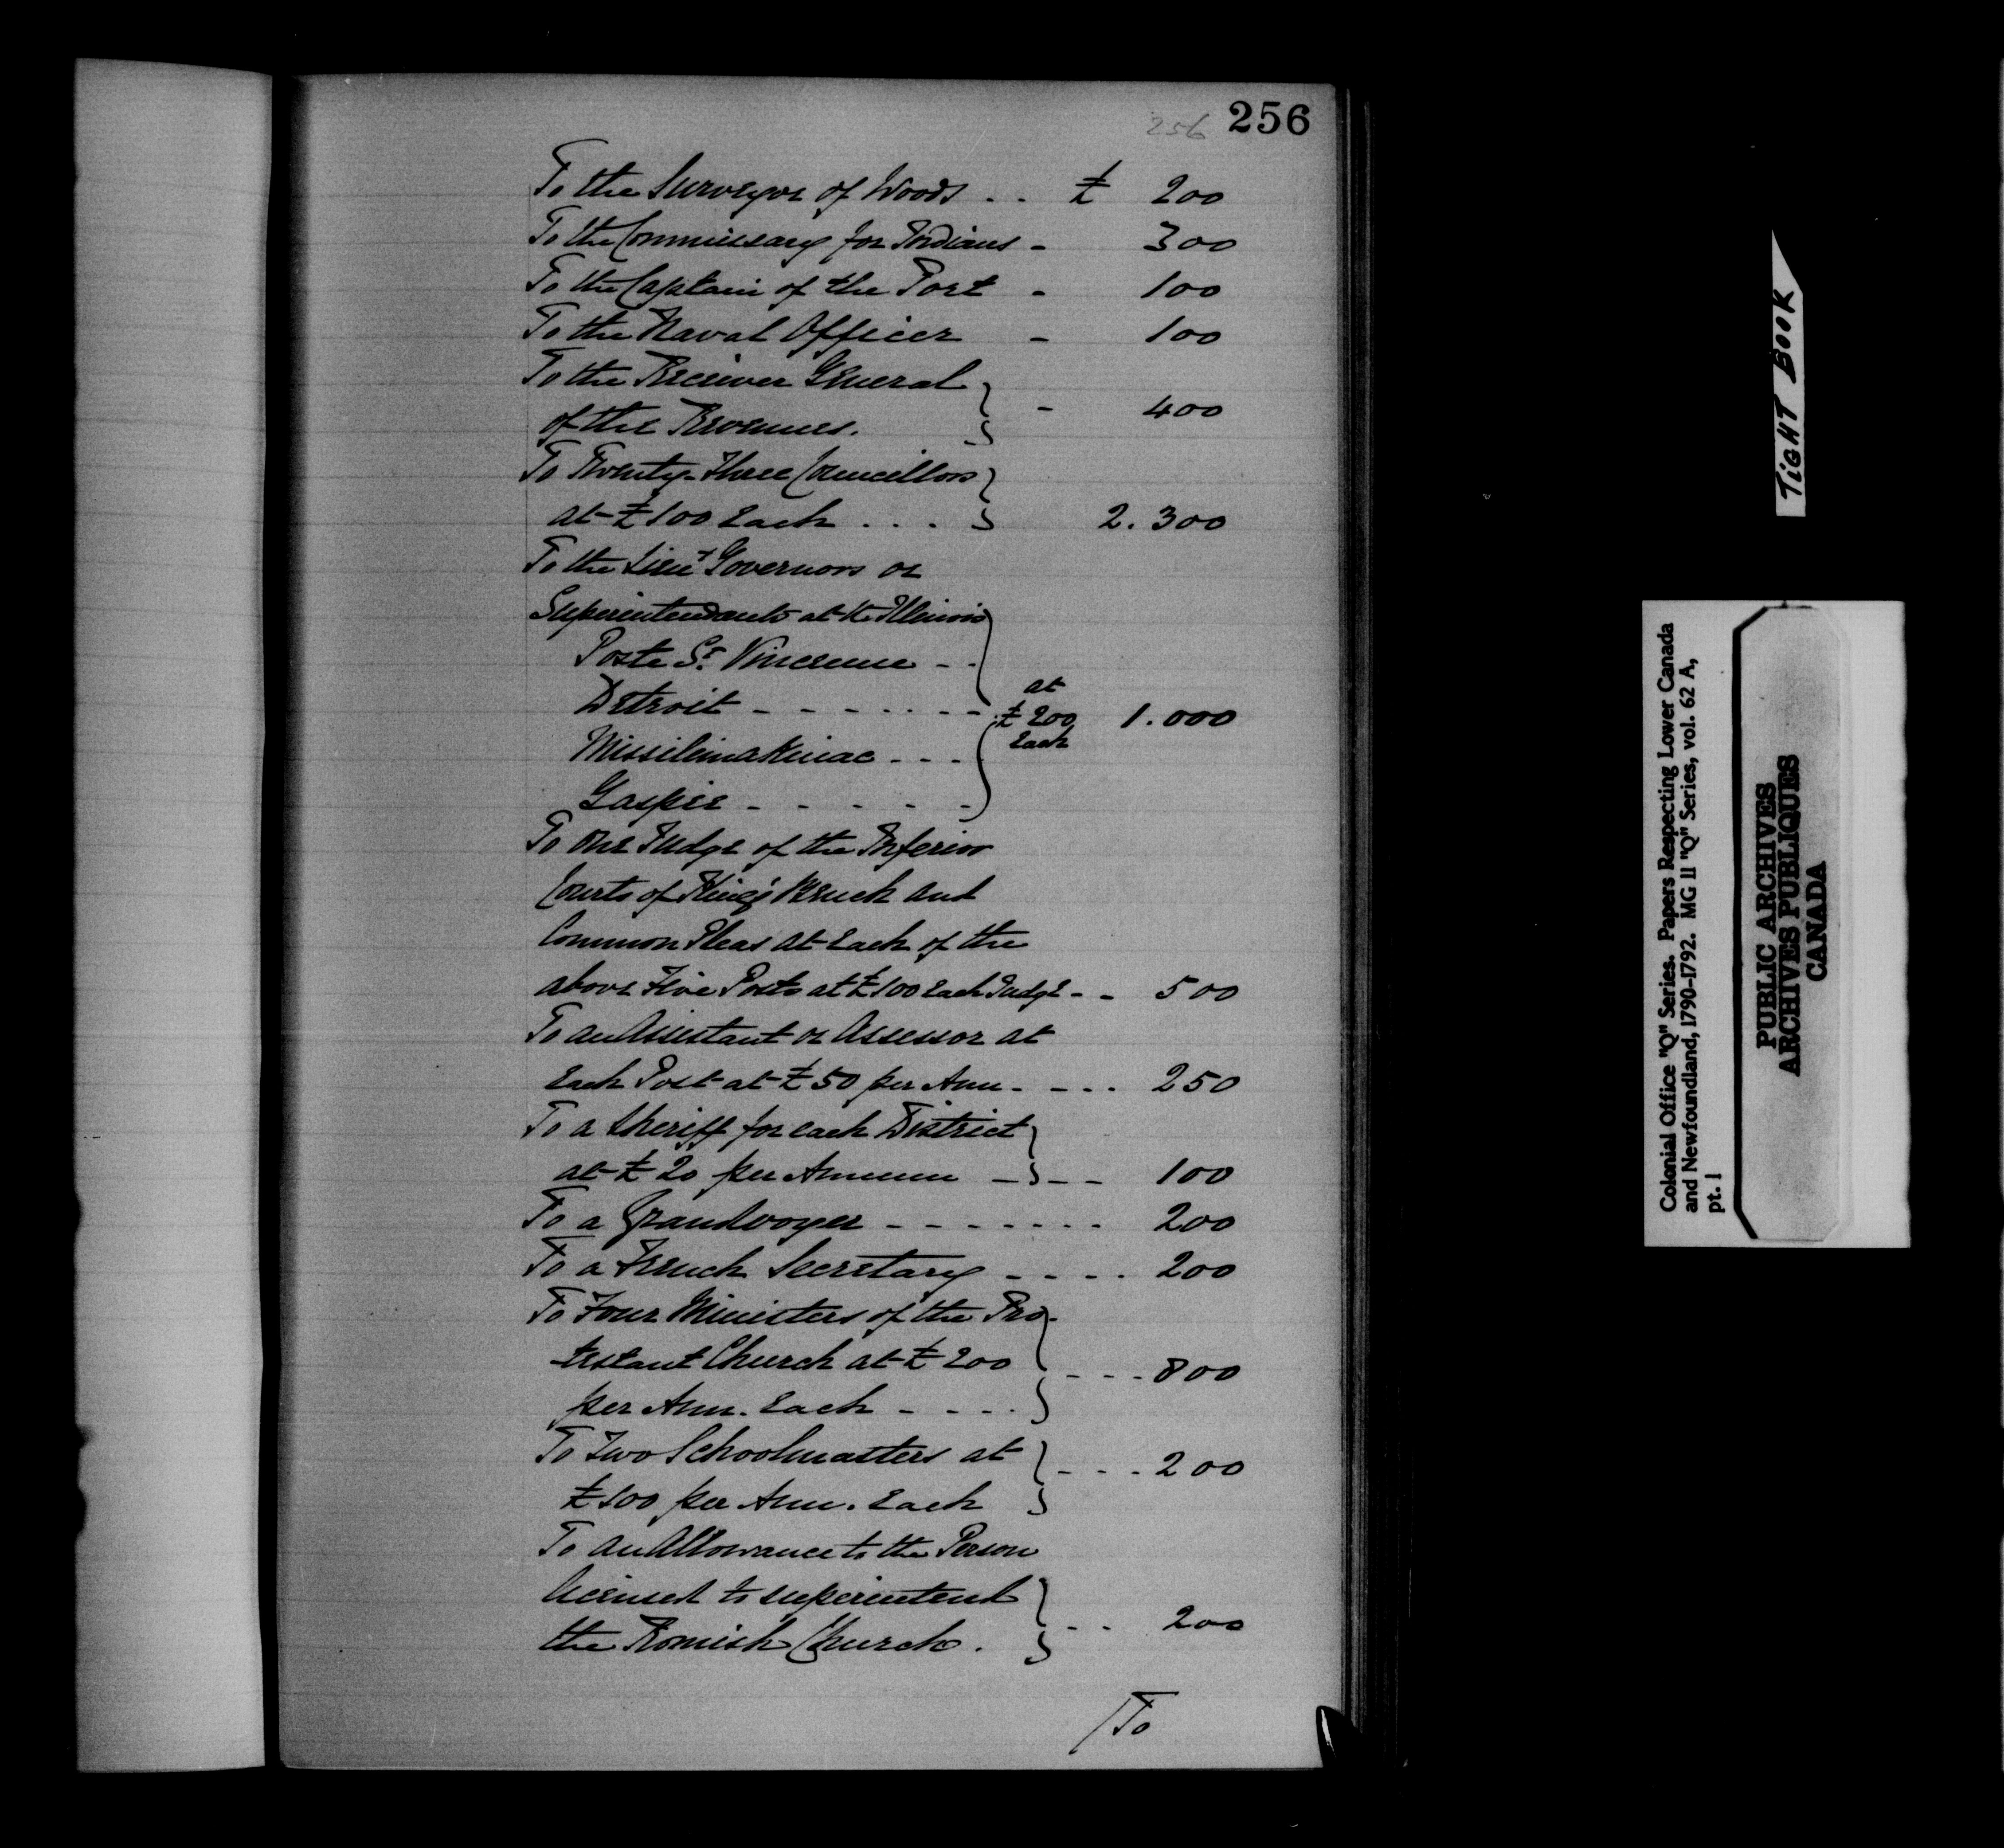 256 256
To the Surveyor of Woods . . £ 200
To the Commissary for Indians - 300
To the Captain of the Port - 100
To the Naval Officer - 100
To the Receiver General
of the Revenues. } - 400
To Twenty-three Councillors
at £100 Each . . . } 2.300
To the Lieut Governors or
Superintendants at the Illinois
Poste St. Vincenne - .
Detroit - - - - - - - at £200 Each 1.000
Missilimakinac - - -
Gaspée - - - - - -
To One Judge of the Inferior
Courts of King's Bench and
Common Pleas at Each of the
above Five Posts at £100 Each Judge - - 500
To an Assistant or Assessor at
Each Post at £50 per Ann - - - . 250
To a Sheriff for each District
at £20 per Annum - } - - 100
To a Grandvoyer - - - - - - - 200
To a French Secretary - - - - 200
To Four Ministers of the Pro-
-testant Church at £200 } - - - 800
per Ann. Each - - - -
To Two Schoolmasters at } - - - 200
£100 per Ann. Each
To an Allowance to the Person
licensed to superintend
the Romish Church . } - - 200
/To
TIGHT BOOK
Colonial Office "Q" Series. Papers Respecting Lower Canada
and Newfoundland, 1790-1792. MG 11 "Q" Series, vol. 62 A,
pt. 1
PUBLIC ARCHIVES
ARCHIVES PUBLIQUES
CANADA